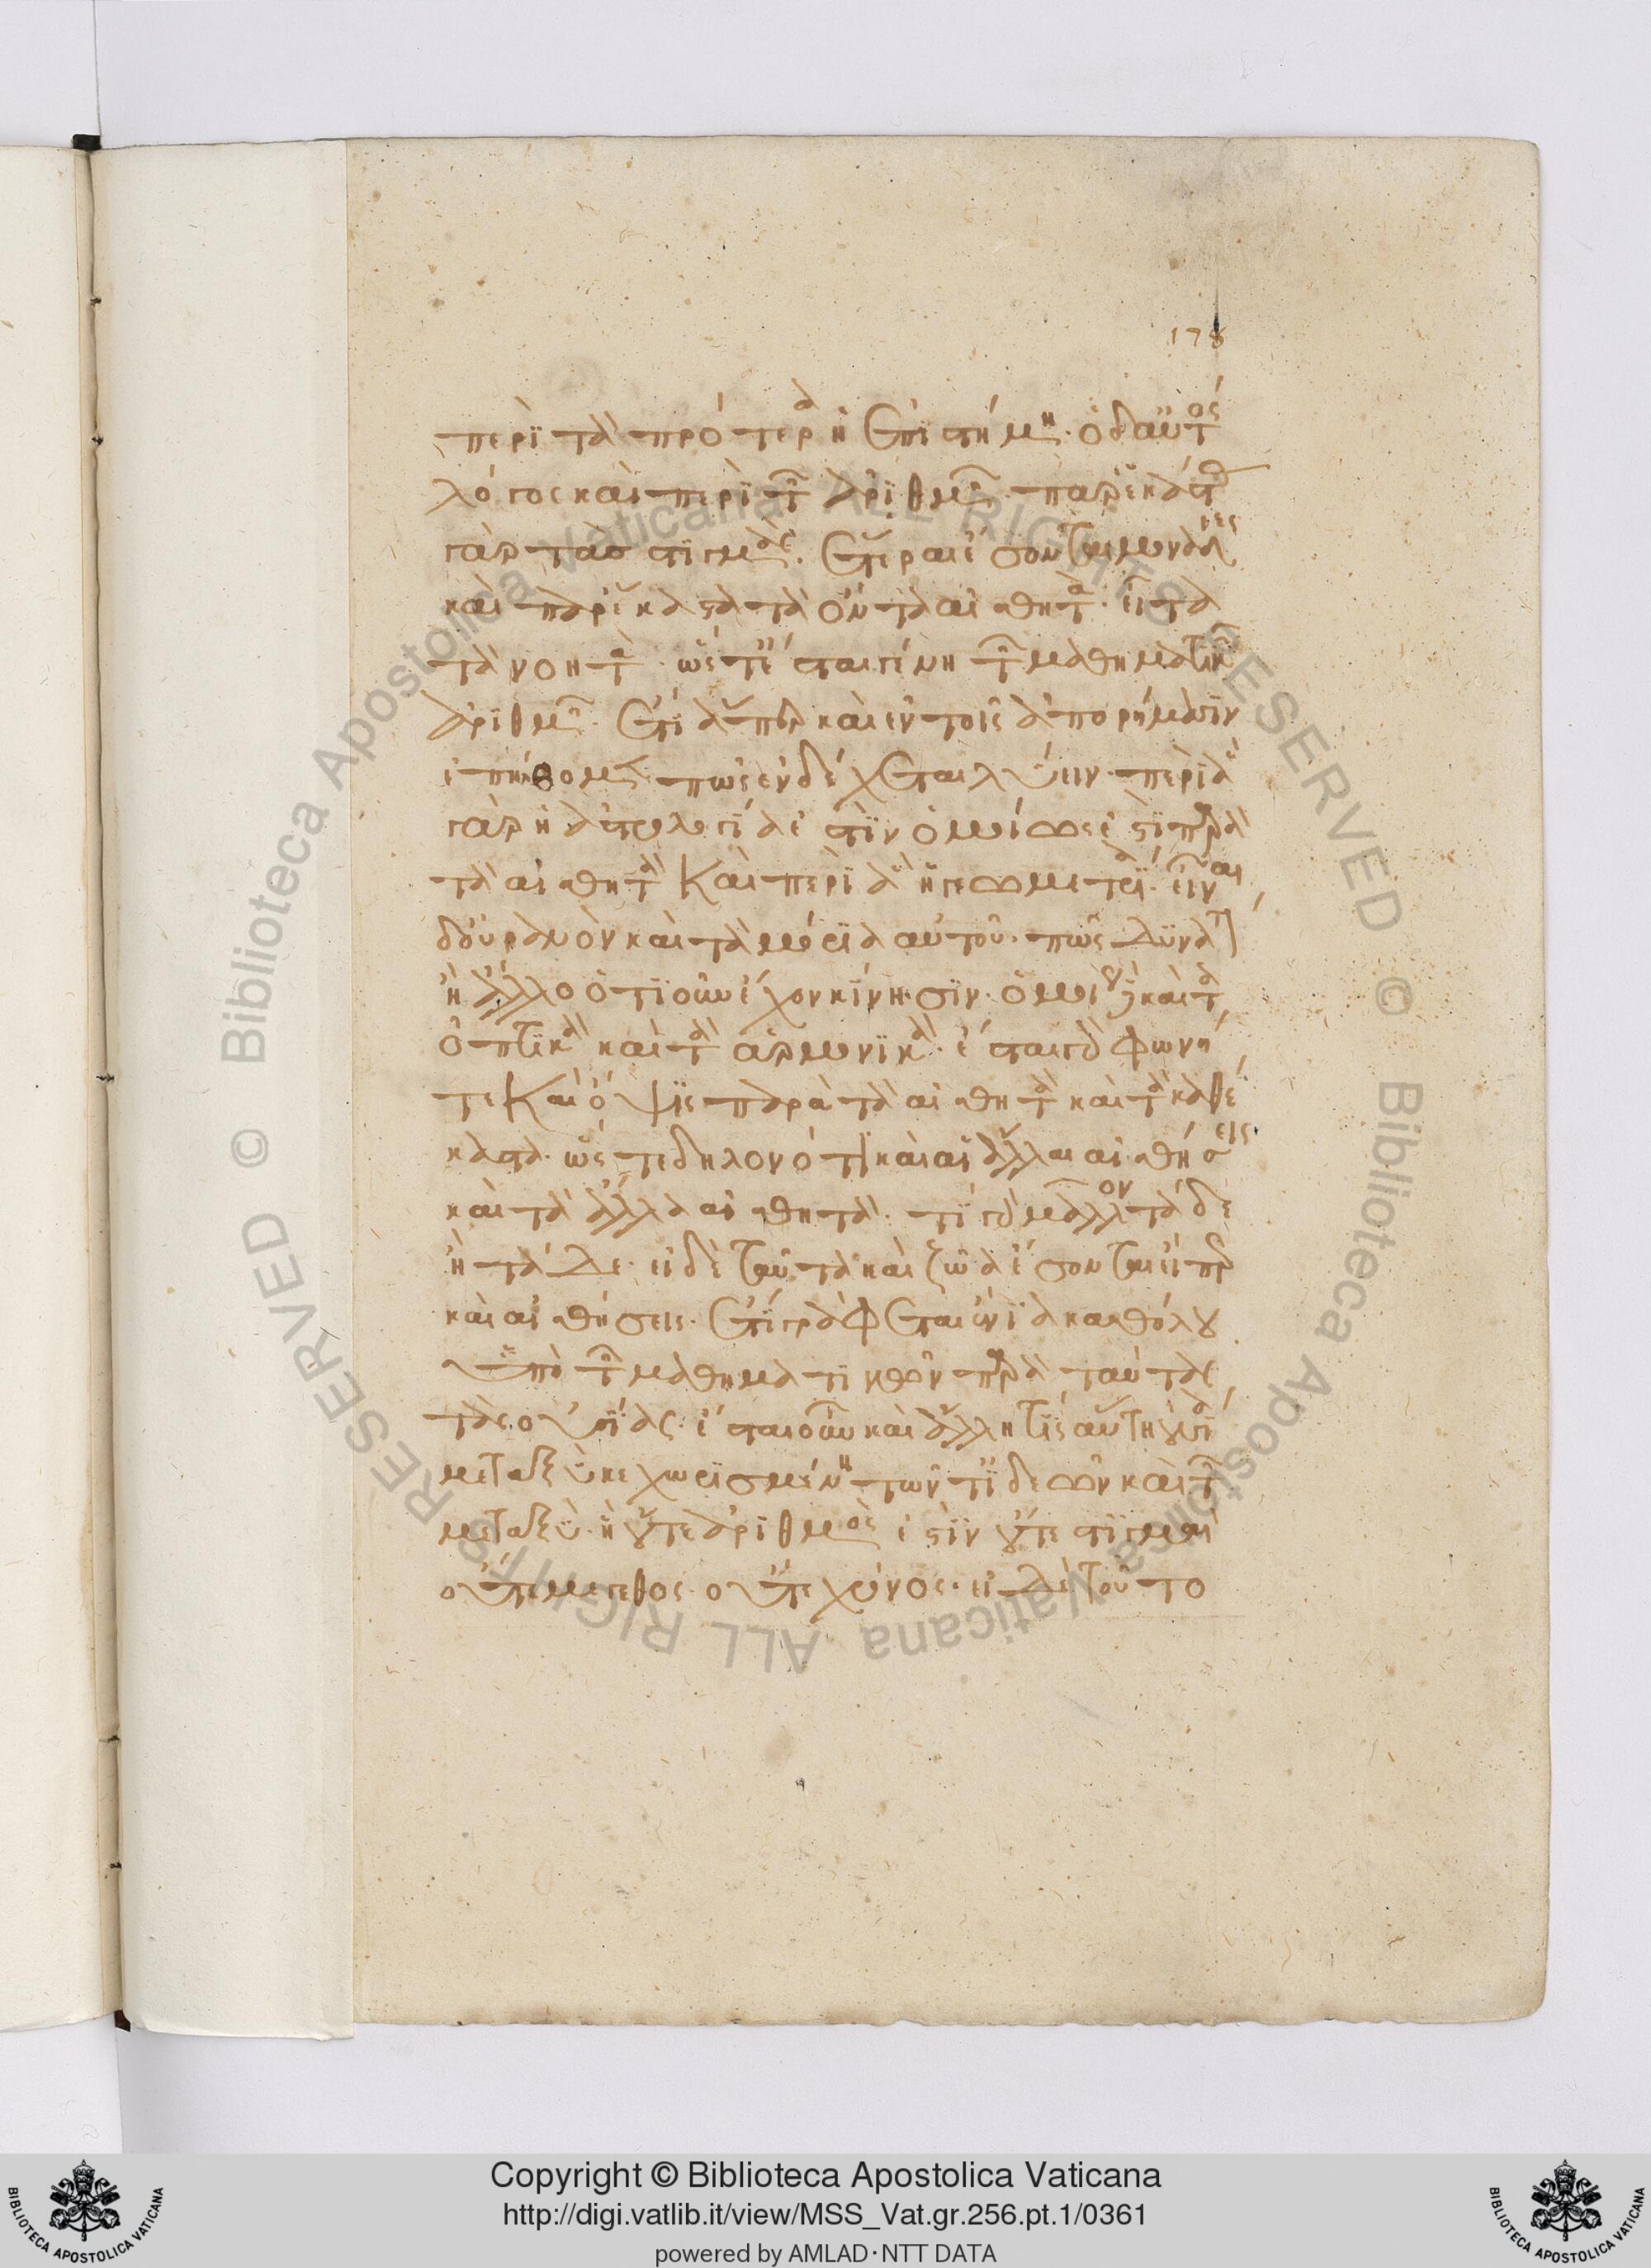 178
περὶ τὰ πρότερα ἡ ἐπιστήμη. ὁ δ' αὐτὸς
λόγος καὶ περὶ τῶν ἀριθμῶν. παρ' ἑκάστας
γὰρ τὰς στιγμὰς. ἕτεραι ἔσονται μονάδες
καὶ παρ' ἕκαστα τὰ ὄντα αἰσθητὰ. εἶτα
τὰ νοητὰ. ὥστ' ἔσται γένη τῶν μαθηματικῶν
ἀριθμῶν. ἔτι ἅπερ καὶ ἐν τοῖς ἀπορήμασιν
ἐπήλθομεν. πῶς ἐνδέχεται λύειν. περὶ ἃ
γὰρ ἡ ἀστρολογία ἐστὶν ὁμοίως ἐστὶ παρὰ
τὰ αἰσθητὰ καὶ περὶ ἃ ἡ γεωμετρία. εἶναι
δ' οὐρανὸν καὶ τὰ μόρια αὐτοῦ. πῶς δυνατὸν
ἢ ἄλλο ὁτιοῦν ἔχον κίνησιν. ὁμοίως δὲ καὶ τὰ
ὀπτικὰ καὶ τὰ ἁρμονικὰ. ἔσται γὰρ φωνή
τε καὶ ὄψις παρὰ τὰ αἰσθητὰ καὶ τὰ καθ' ἕ
καστα. ὥστε δηλονότι καὶ αἱ ἄλλαι αἰσθήσεις
καὶ τὰ ἄλλα αἰσθητά. τί γὰρ μᾶλλον τάδε
ἢ τάδε. εἰ δὲ ταῦτα καὶ ζῶα ἔσονται εἴπερ
καὶ αἰσθήσεις. ἔτι γράφεται ἔνια καθόλου
ὑπὸ τῶν μαθηματικῶν παρὰ ταύτας
τὰς οὐσίας. ἔσται οὖν καὶ ἄλλη τις αὕτη οὐσία
μεταξὺ κεχωρισμένη τῶν τ' ἰδεῶν καὶ τῶν
μεταξύ. ἣ οὔτε ἀριθμὸς ἐστὶν οὔτε στιγμαὶ
οὔτε μέγεθος. οὔτε χρόνος. εἰ δὲ τοῦτο
Copyright © Biblioteca Apostolica Vaticana
http://digi.vatlib.it/view/MSS_Vat.gr.256.pt.1/0361
powered by AMLAD·NTT DATA